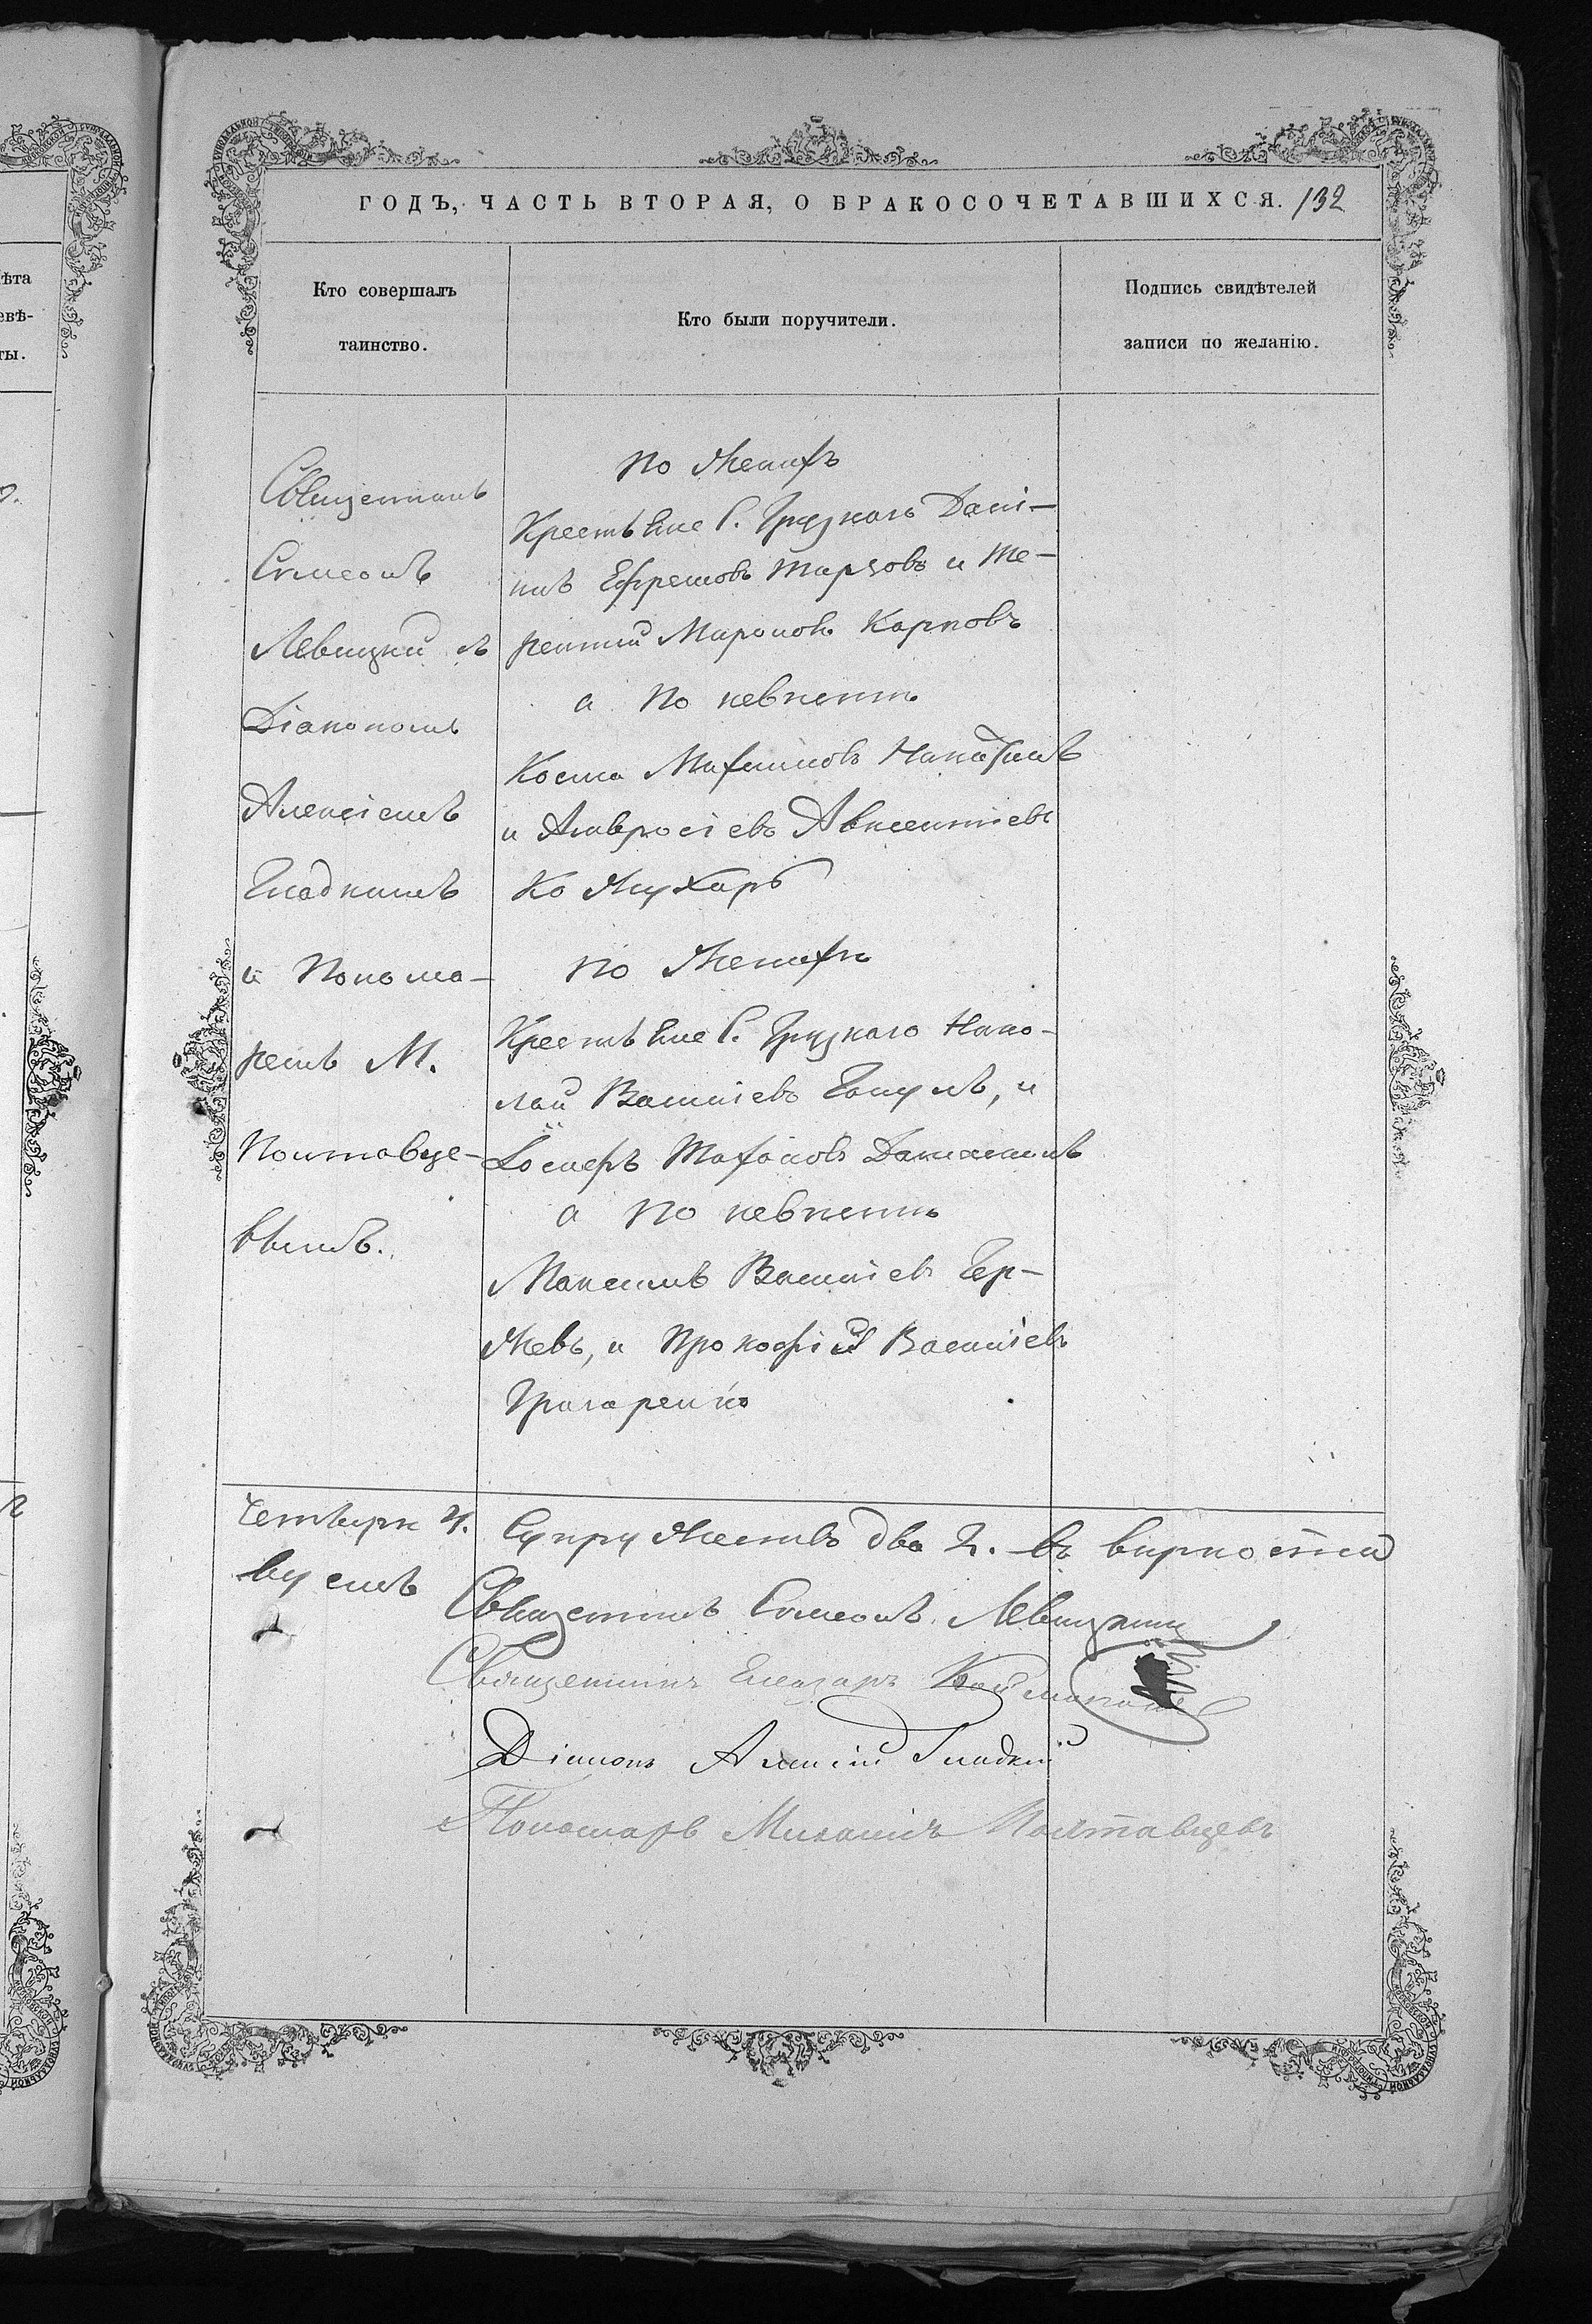 ГОДЪ, ЧАСТЬ ВТОРАЯ, О БРАКОСОЧЕТАВШИХСЯ. 132
Кто совершалъ
таинство.
Кто были поручители.
Подпись свидѣтелей
записи по желанію.
Священникъ
Симеонъ
Левицкій съ
Діакономъ
Алексіемъ
Гладкимъ
и Понома-
ремъ М.
Полтавце-
вымъ.
по женихѣ
Крестьяне С. Грузкаго Дані-
илъ Ефремовъ и Те-
рентій Мироновъ Карповъ
а по невѣстѣ
Косма Никитинъ
и Амвросіевъ Авксентіевъ
Кожухарь
по женихѣ
Крестьяне С. Грузкаго Нико-
лай Василіевъ и
а по невѣстѣ
Максимъ Василіевъ Бер-
жевъ, и Прокофій Василіевъ
Григоренко
Супружествъ два 2. въ вирности
Священникъ Симеонъ Левицкій
Священникъ Елеазаръ
Діаконъ Алексій Гладкій
Пономарь Михаилъ Полтавцевъ
ѣта
евѣ-
ты.